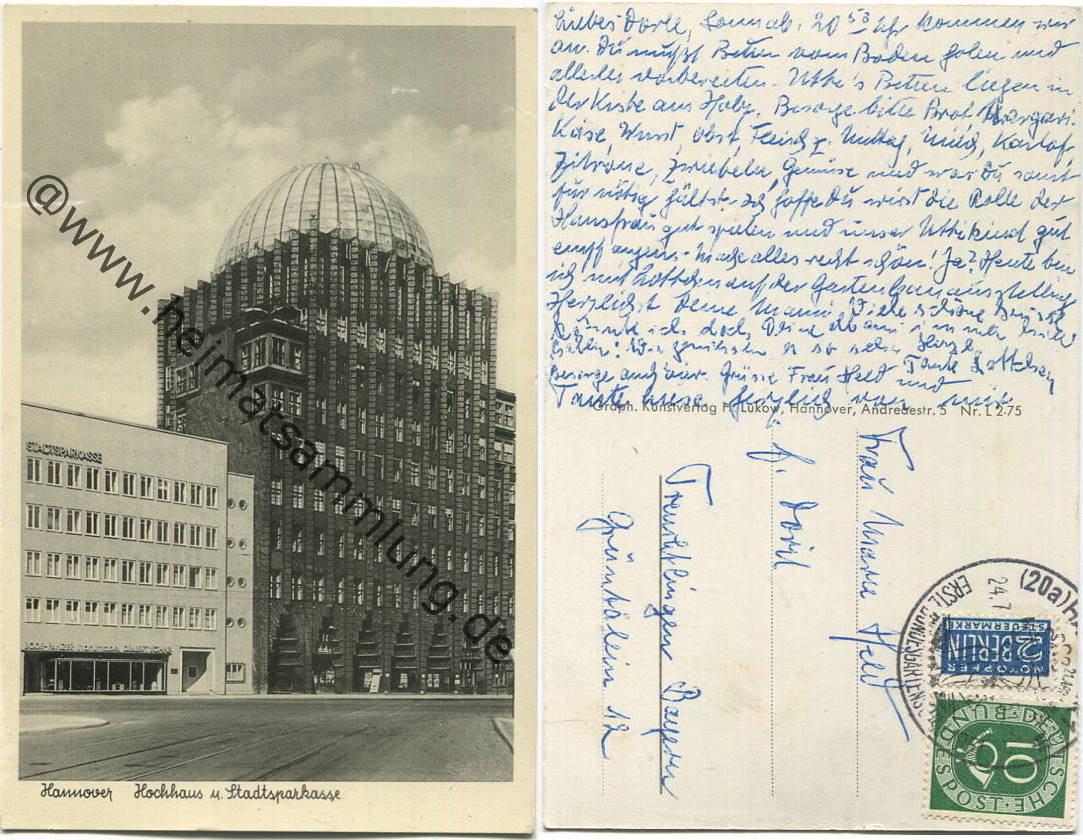 STADTSPARKASSE
Hannover Hochhaus u. Stadtsparkasse
@www.heimatsammlung.de
Liebes Dorle, Sonnab. 20 53 Uhr kommen wir
an. Du mußt Betten vom Boden holen und
alles vorbereiten. Utke's Betten liegen in
der Kiste aus Holz. Besorge bitte Brot Margari.
Käse, Wurst, Obst, Fleisch z. Mittag, Milch, Kartof.
Zitrone, Zwiebeln, Gemüse und was Du sonst
für nötig hältst. Ich hoffe Du wirst die Rolle der
Hausfrau gut spielen und unser Utkekind gut
empfangen. Mache alles recht schön! Ja? Heute bin
ich mit Lottchen auf der Gartenbauausstellung
Herzlichst Deine Mami. Viele schöne Grüße
ich doch Deine Mami
so sehr. Tante Lottchen
Besorge auch Grüsse Frau Held und
Tante herzlich von mir
Graph. Kunstverlag H. Lukow, Hannover, Andreaestr. 5 Nr. L 2-75
Frau Marie Held
f. Doril
Treuchtlingen Bayern
Grüntälein 12
(20a)
24.7
ERSTE BUNDESGARTEN
NOTOPFER
2 BERLIN
STEUERMARKE
10
DEUTSCHE BUNDESPOST